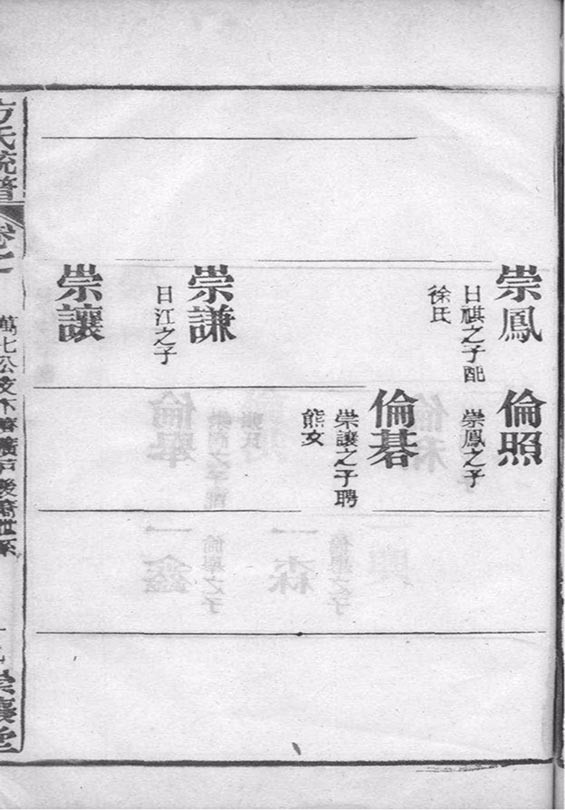 崇鳳
日祺之子配
徐氏
崇謙
日江之子
崇讓
倫照
崇鳳之子
倫碁
崇讓之子聘
熊女
方氏統譜
卷之
萬七公支下
世系
崇讓堂